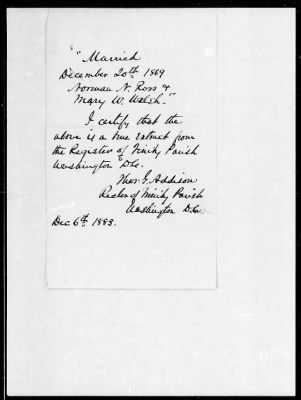 "Married
December 20th 1869
Norman N. Ross &
Mary W. Walsh."
I certify that the
above is a true extract from
the Register of Trinity Parish
Washington D.C.
Theo. G. Addison
Rector of Trinity Parish
Washington D.C.
Dec 6th 1883.